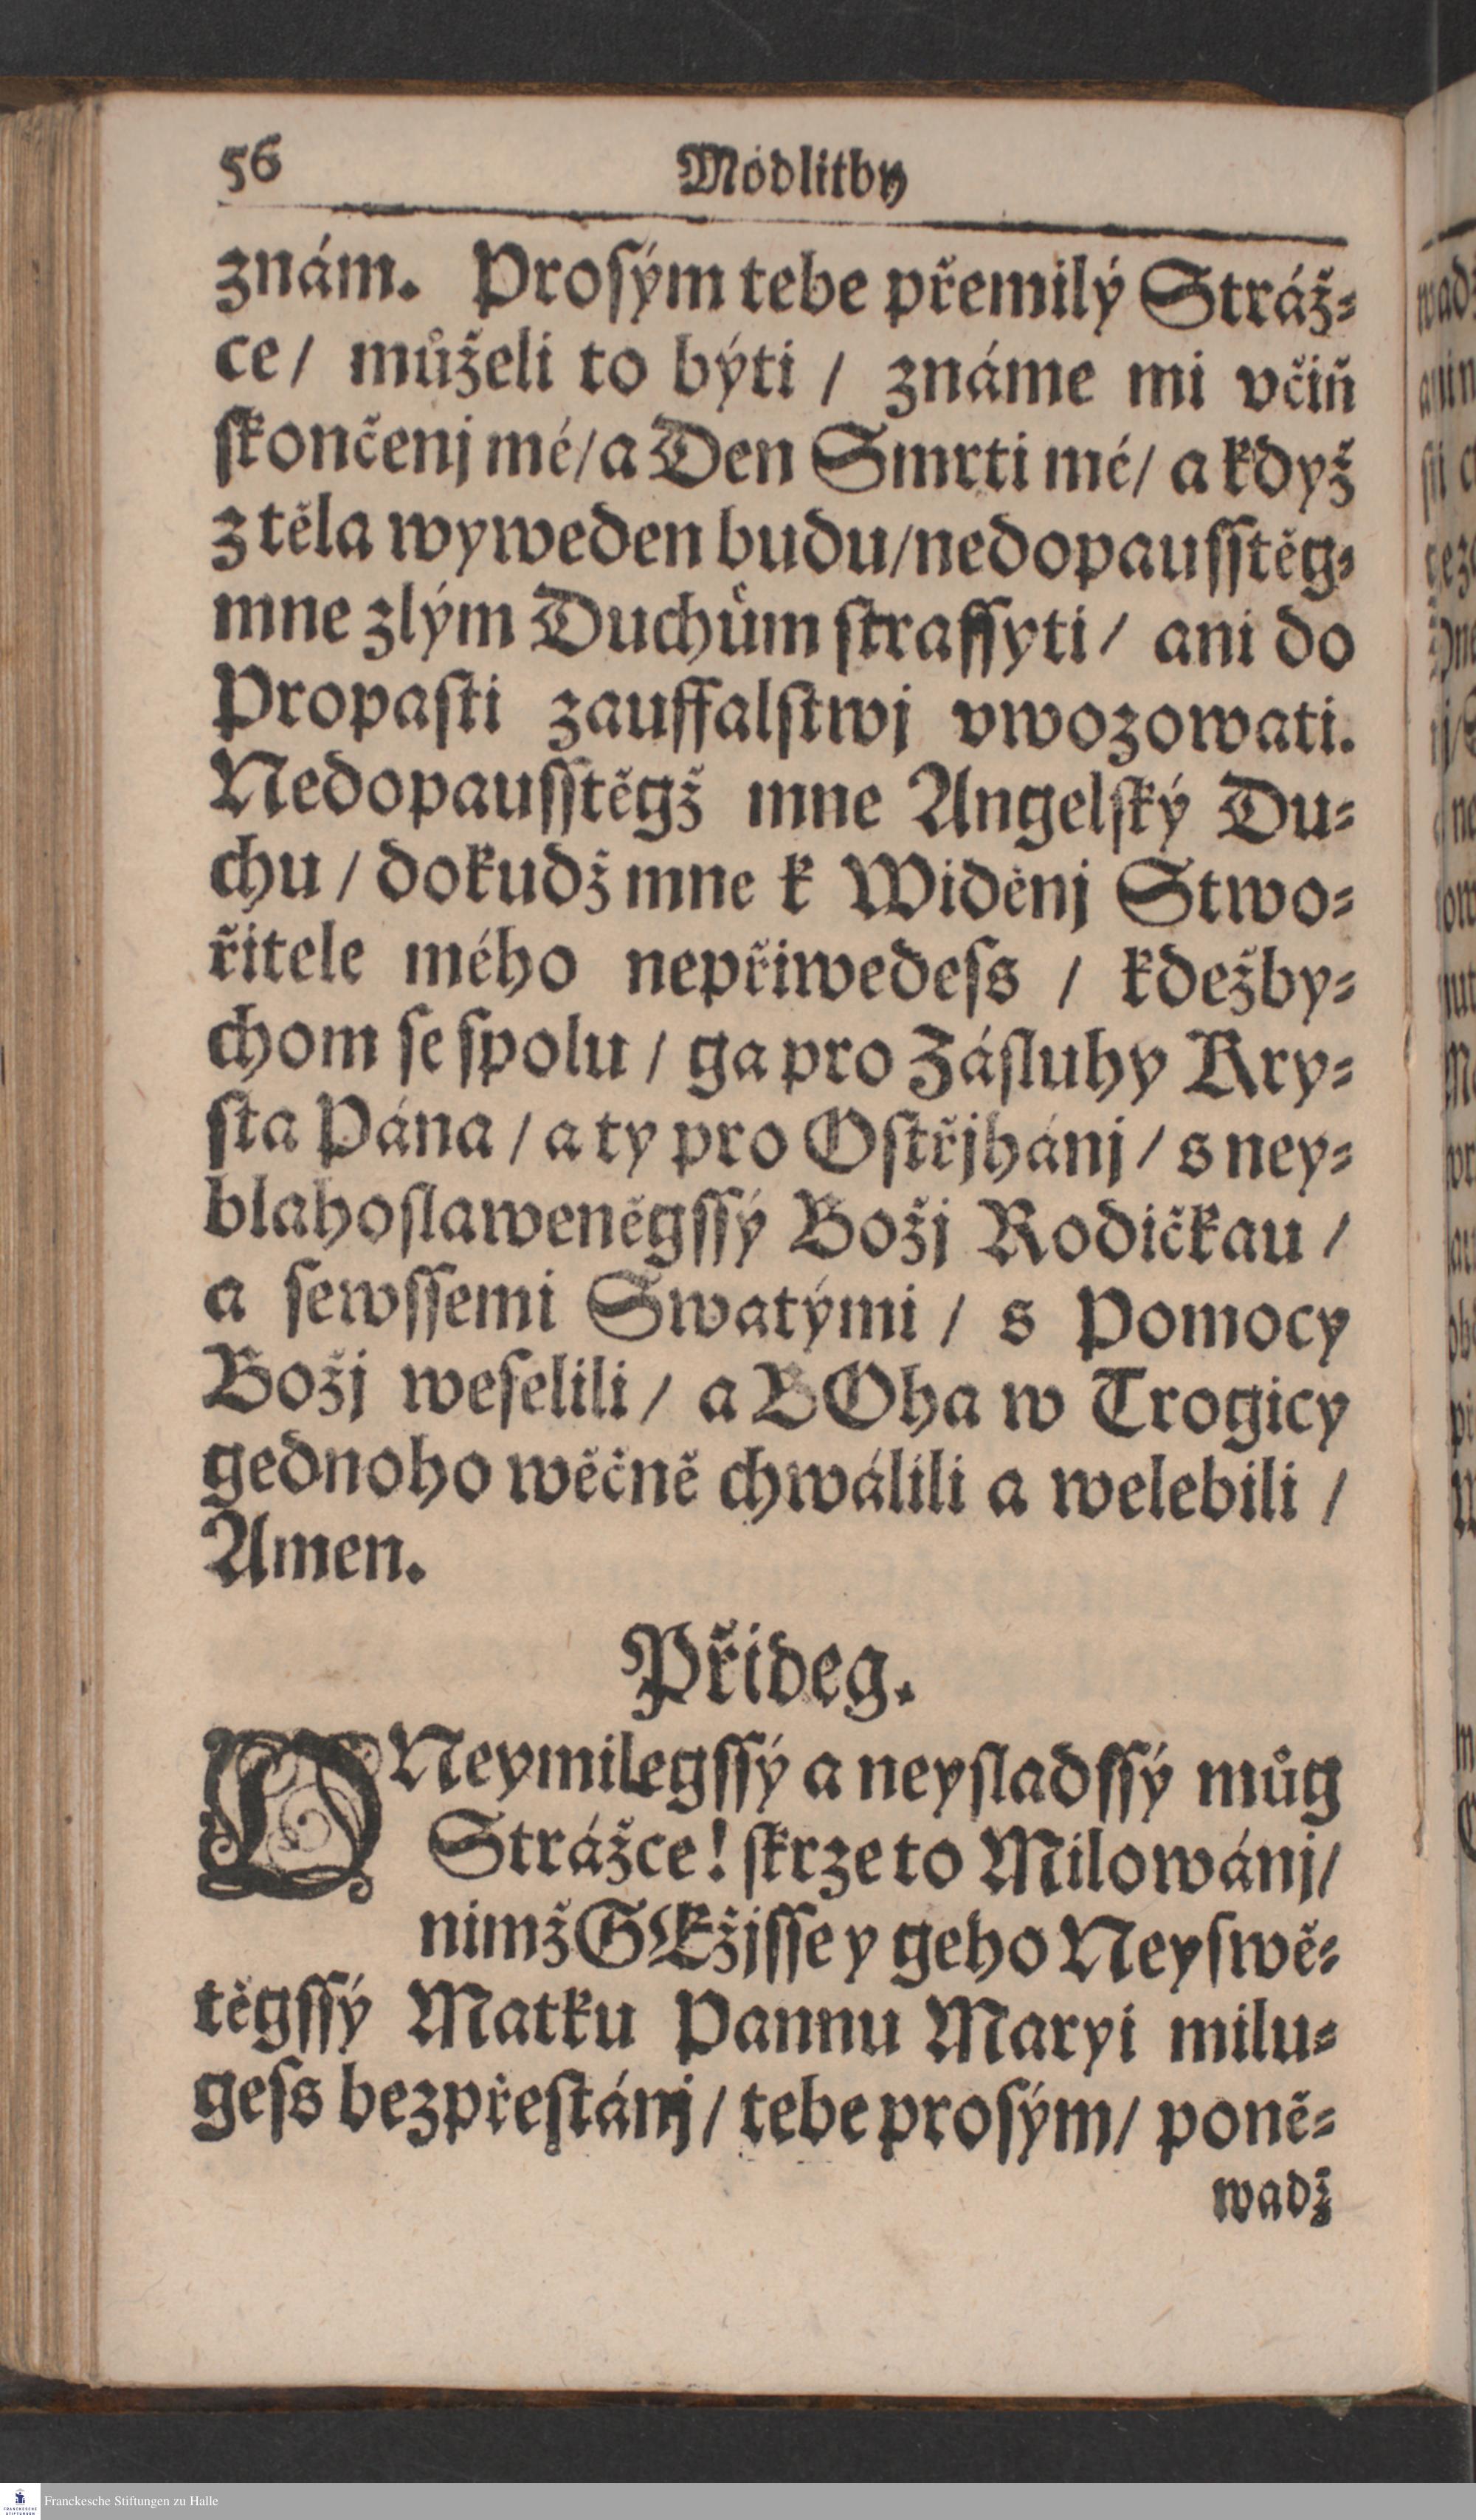 56 Modlitby
znám. Proſým tebe přemilý Stráž⸗
ce/ můželi to býti / známe mi včiň
ſkončenj mé/ a Den Smrti mé/ a když
z těla wyweden budu/ nedopauſſtěg⸗
mne zlým Duchům ſtraſſyti/ ani do
Propaſti zauffalſtwj vwozowati.
Nedopauſſtěgž mne Angelſký Du⸗
chu / dokudž mne k Widěnj Stwo⸗
řitele mého nepřiwedeſs / kdežby⸗
chom ſe ſpolu / ga pro Záſluhy Kry⸗
ſta Pána / a ty pro Oſtřjhánj / s ney⸗
blahoſlaweněgſſý Božj Rodičkau /
a ſewſſemi Swatými / s Pomocy
Božj weſelili / a BOha w Trogicy
gednoho wěčně chwálili a welebili /
Amen.
Přideg.
O Neymilegſſý a neyſladſſý můg
Strážce! ſkrze to Milowánj/
nimž GEžjſſe y geho Neyſwě⸗
těgſſý Matku Pannu Maryi milu⸗
geſs bezpřeſtánj / tebe proſým/ poně⸗
wadž
Franckesche Stiftungen zu Halle